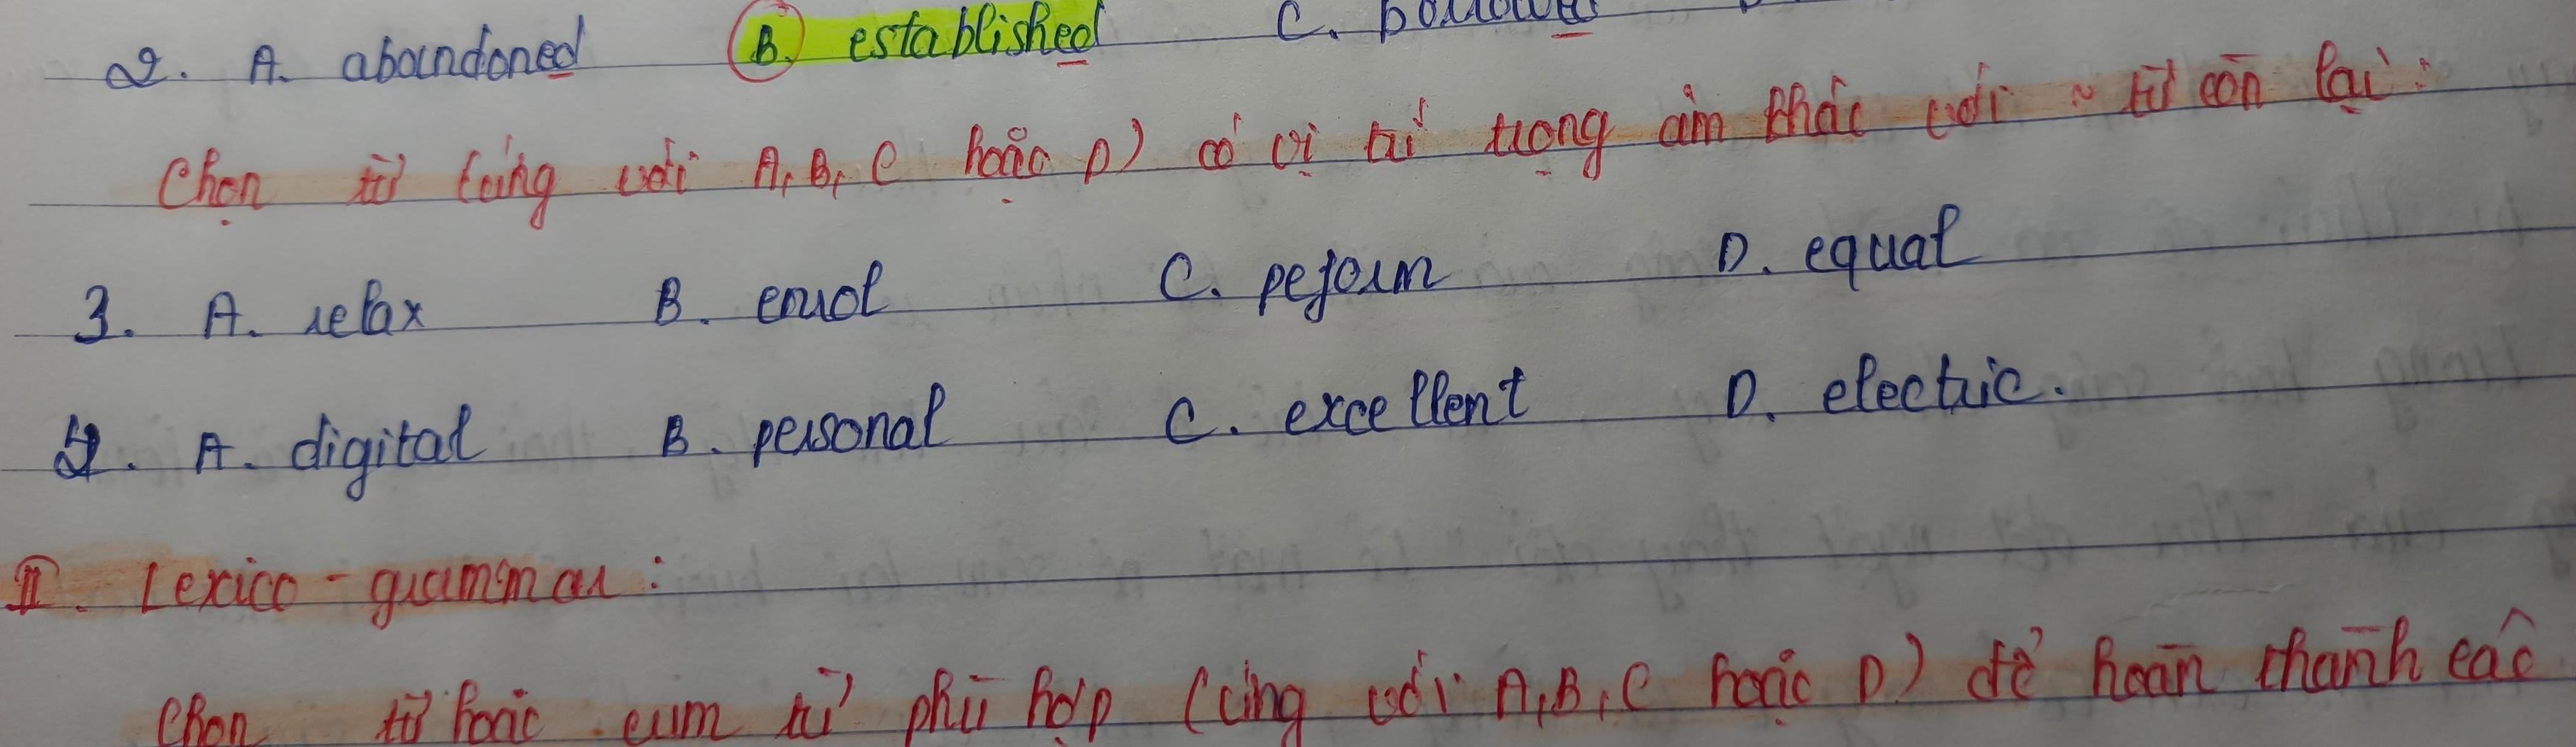 2. A. abandoned B. established C. borrowed
Chọn từ (ứng với A, B, C hoặc D) có vị trí trọng âm khác với ~ từ còn lại:
3. A. relax B. enrol C. peform D. equal
4. A. digital B. personal C. excellent D. electric.
II. Lexico - grammar:
Chọn từ hoặc cụm từ phù hợp (ứng với A, B, C hoặc D) để hoàn thành các